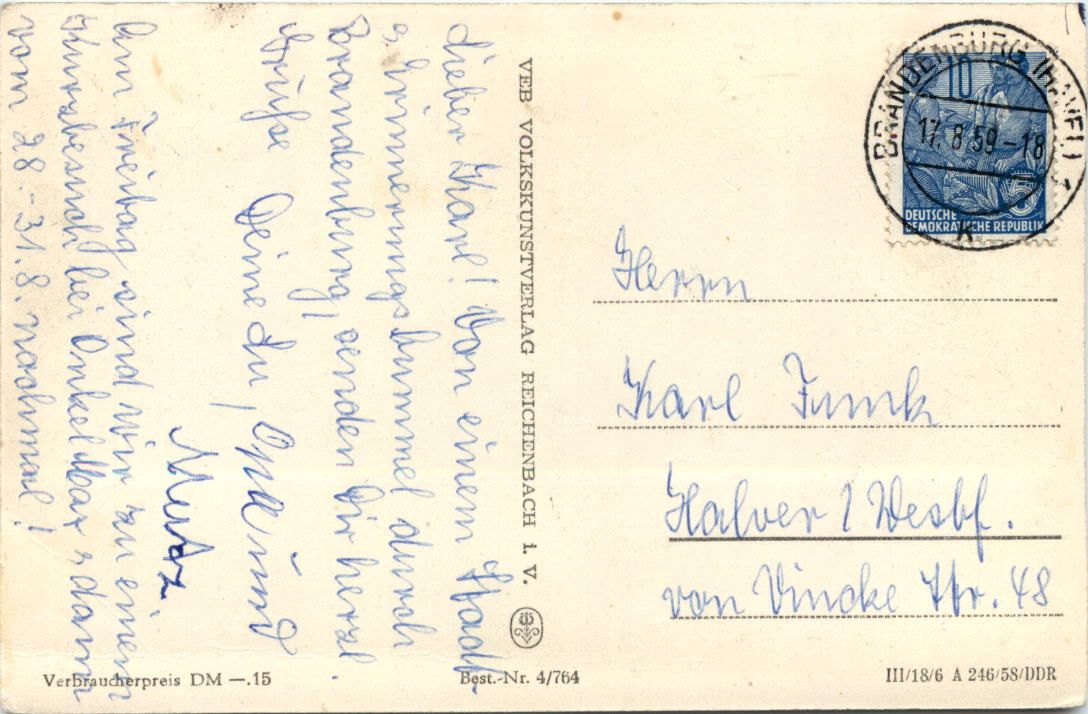 Lieber Karl! Von einem Stadt-
u. Erinnerungsbummel durch
Brandenburg, senden Dir herzl.
Grüße Deine Lu, Opa und
Mutz
Am Freitag sind wir zu einem
Kurzbesuch bei Onkel Max u. dann
vom 28.-31.8. nochmal!
VEB VOLKSKUNSTVERLAG REICHENBACH i. V.
BRANDENBURG (HAVEL) 1
17.8.59-18
k
10
5
DEUTSCHE
DEMOKRATISCHE REPUBLIK
Herrn
Karl Funck
Halver / Westf.
von Vincke Str. 48
Verbraucherpreis DM —.15
Best.-Nr. 4/764
III/18/6 A 246/58/DDR